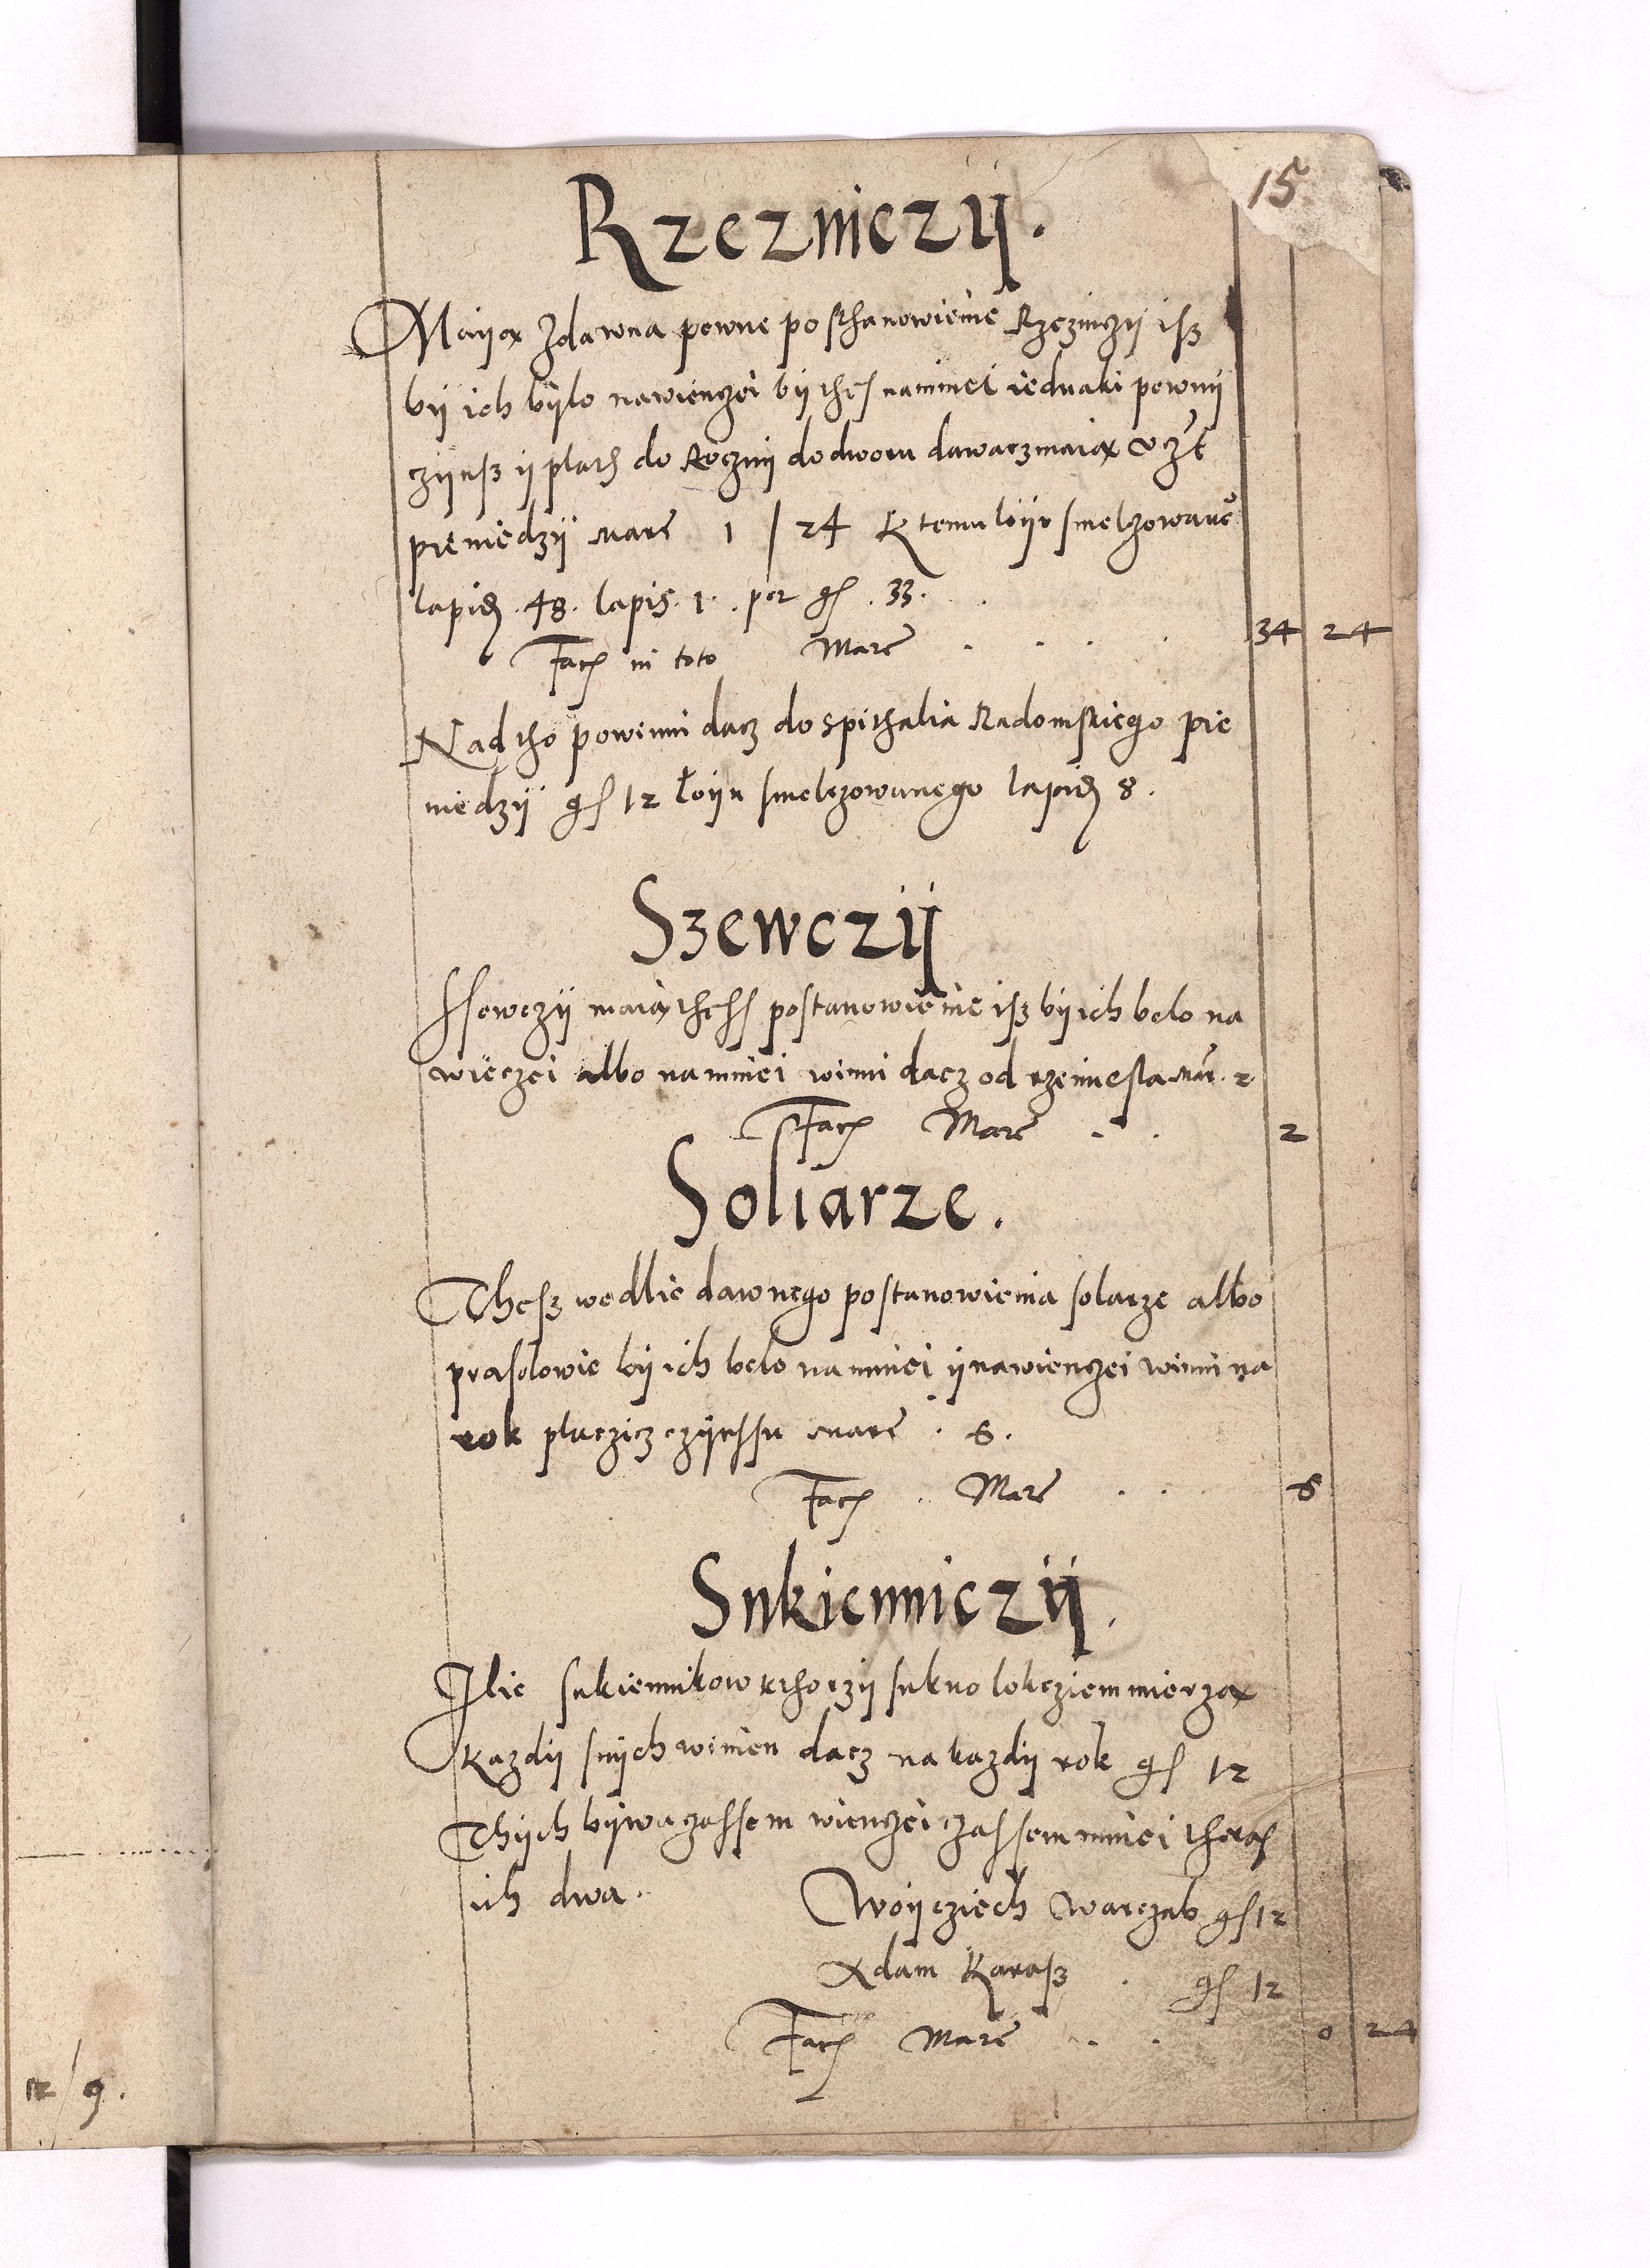 15
Rzeznicziÿ.
Maiją zdawna pewne posthanowienie Rzezniczÿ isz
bÿ ich bÿlo nawienczei bÿ thes namniei iednaki pewnÿ
czÿnsz ÿ plath do Rocznÿ do dworu dawacz maią
pieniedzÿ marc 1 / 24 K temu lÿoiu smelczowane
lapid. 48. lapis. 1. per gs. 33.
Facit in toto Marc . . . . 34 24
Nad tho powinni dacz do spithalia Radomskiego pie
niedzÿ gs 12 łoÿu smelczowanego lapid 8.
Szewczÿ
Ssewczÿ maią thess postanowienie isz bÿ ich belo na
wieczei albo namniei winni dacz od rzemiesla mar. 2
Facit Marc . . 2
Soliarze.
Thesz wedlie dawnego postanowienia solarze albo
prasolowie bÿ ich belo namniei ÿ nawienczei winni na
rok placzicz czÿnssu marc . 6.
Facit .. Marc . . 6
Sukienniczÿ.
Ilie sukiennikow kthorzÿ sukno lokcziem mierzą
kazdÿ snÿch winien dacz na kazdÿ rok gs 12
Thÿch bÿwa czassem wienczei czassem mniei theras
ich dwa. Woÿcziech Warczab gs 12
Adam Karasz . gs 12
Facit Marc . . 0 24
12/9.